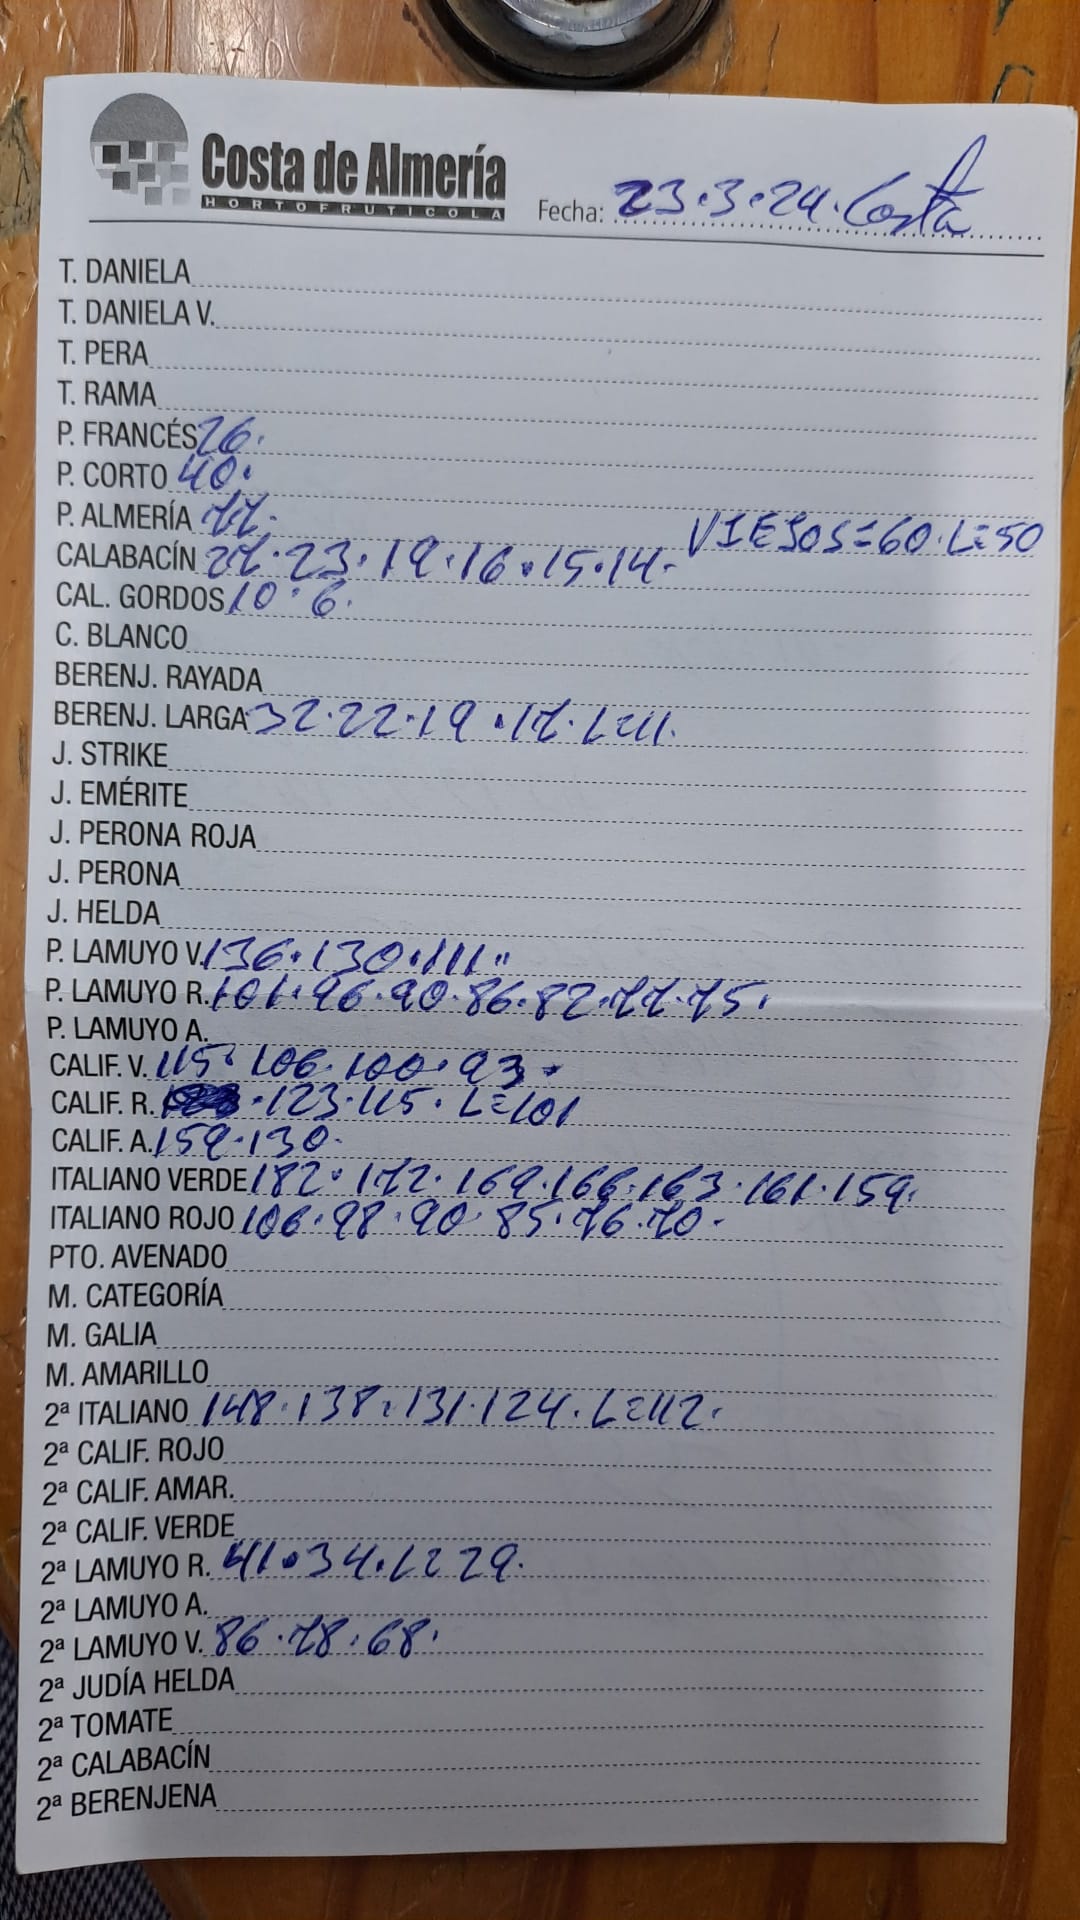 Costa de Almería
HORTOFRUTICOLA
Fecha: 23.3.24. Costa
T. DANIELA
T. DANIELA V.
T. PERA
T. RAMA
P. FRANCÉS 26.
P. CORTO 40.
P. ALMERÍA 77.
VIEJOS=60.L=50
CALABACÍN 27.23.19.16.15.14.
CAL. GORDOS 10.6.
C. BLANCO
BERENJ. RAYADA
BERENJ. LARGA 32.22.19.17.L=11.
J. STRIKE
J. EMÉRITE
J. PERONA ROJA
J. PERONA
J. HELDA
P. LAMUYO V. 136.130.111"
P. LAMUYO R. 101.96.90.86.82.77.75.
P. LAMUYO A.
CALIF. V. 115.106.100.93.
CALIF. R. .123.115.L=101
CALIF. A. 159.130.
ITALIANO VERDE 182.172.169.166.163.161.159.
ITALIANO ROJO 106.98.90.85.76.70.
PTO. AVENADO
M. CATEGORÍA
M. GALIA
M. AMARILLO
2ª ITALIANO 148.138.131.124.L=112.
2ª CALIF. ROJO
2ª CALIF. AMAR.
2ª CALIF. VERDE
2ª LAMUYO R. 41.34.L=29.
2ª LAMUYO A.
2ª LAMUYO V. 86.78.68.
2ª JUDÍA HELDA
2ª TOMATE
2ª CALABACÍN
2ª BERENJENA